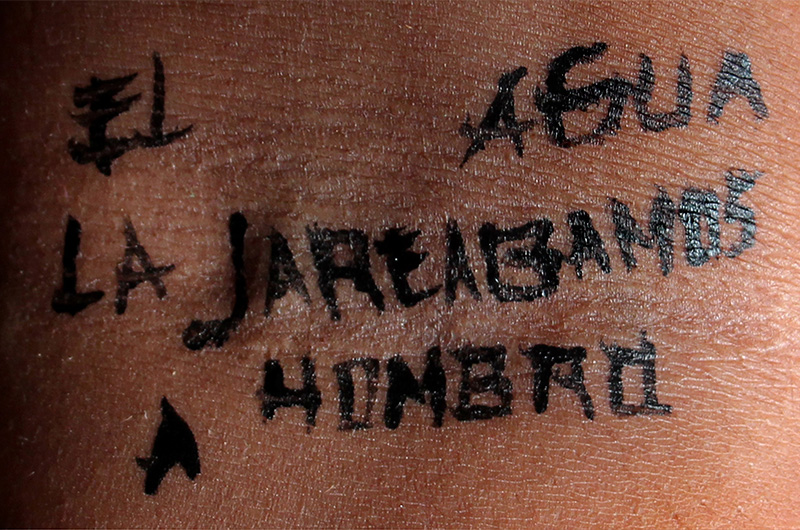 EL AGUA
LA JAREABAMOS
A HOMBRO